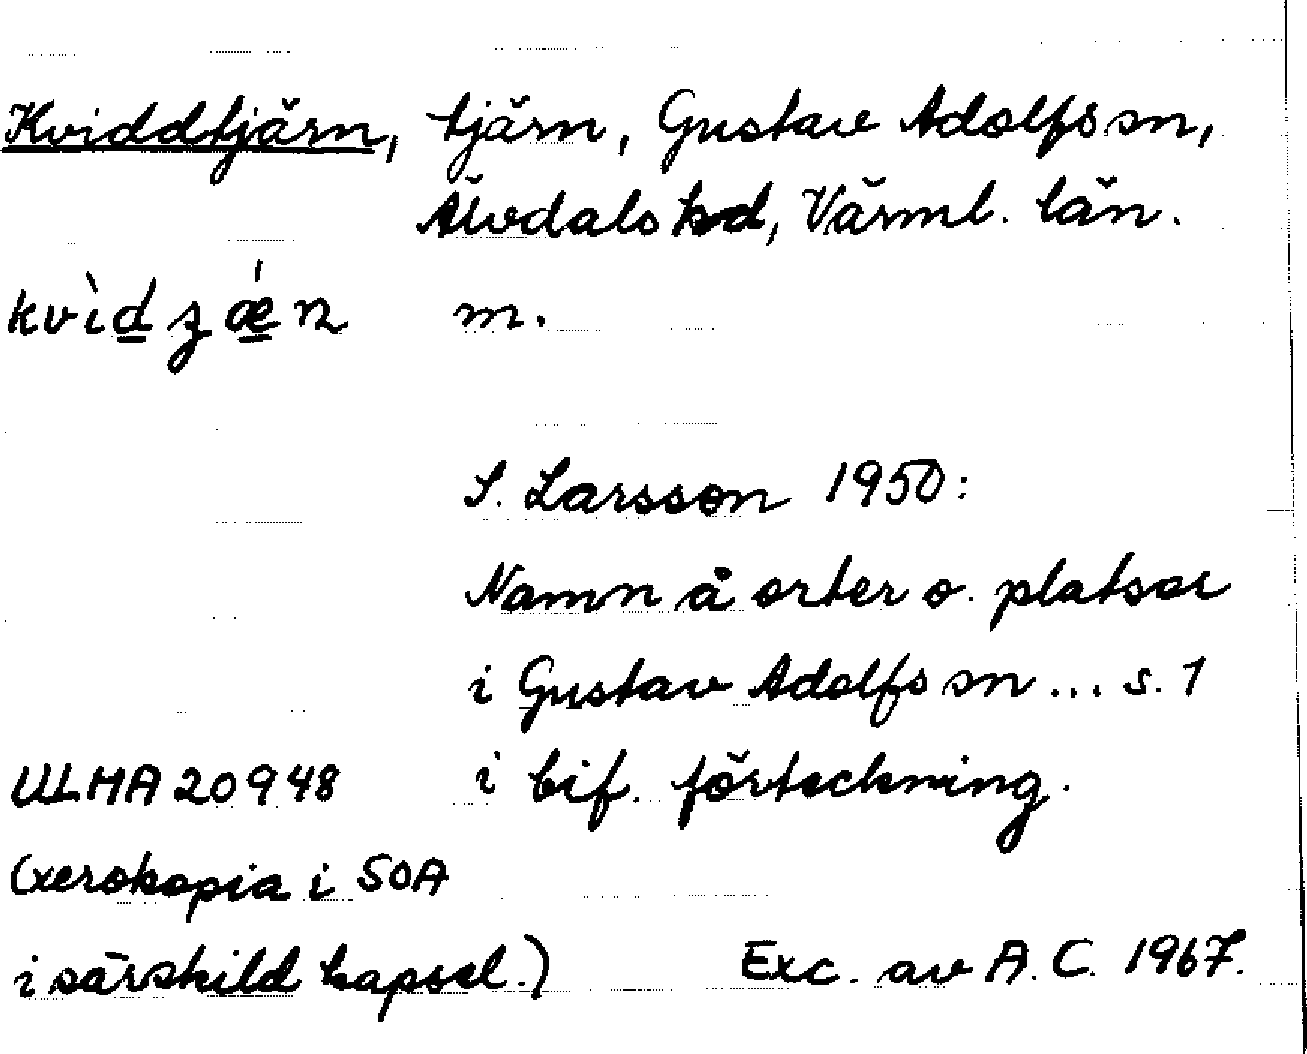 Kviddtjärn, tjärn, Gustav Adolfs sn,
Älvdals hd, Värml. län.
kvìdʒǽn m.
S. Larsson 1950:
Namn å orter o. platser
i Gustav Adolfs sn... s. 1
ULMA 20948 i bif. förteckning.
(xerokopia i SOA
i särskild kapsel.) Exc. av A.C. 1967.